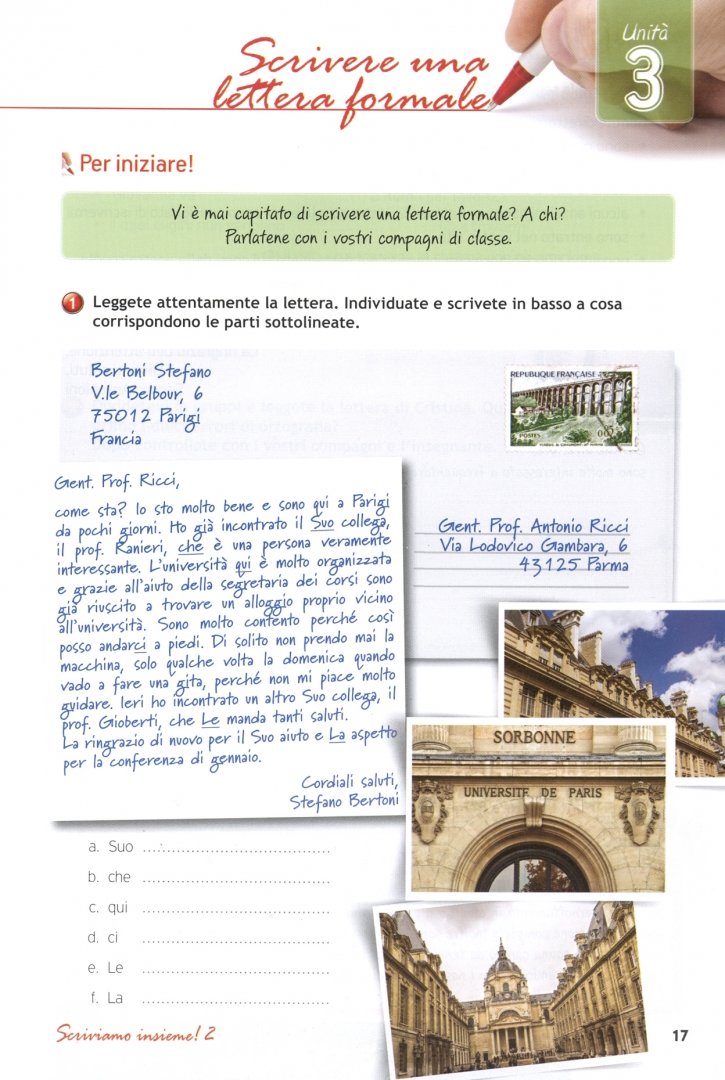 Unità
3
Scrivere una
lettera formale
Per iniziare!
Vi è mai capitato di scrivere una lettera formale? A chi?
Parlatene con i vostri compagni di classe.
1 Leggete attentamente la lettera. Individuate e scrivete in basso a cosa
corrispondono le parti sottolineate.
Bertoni Stefano
V.le Belbour, 6
75012 Parigi
Francia
REPUBLIQUE FRANÇAISE
POSTES
Gent. Prof. Ricci,
come sta? Io sto molto bene e sono qui a Parigi
da pochi giorni. Ho già incontrato il Suo collega,
il prof. Ranieri, che è una persona veramente
interessante. L'università qui è molto organizzata
e grazie all'aiuto della segretaria dei corsi sono
già riuscito a trovare un alloggio proprio vicino
all'università. Sono molto contento perché così
posso andarci a piedi. Di solito non prendo mai la
macchina, solo qualche volta la domenica quando
vado a fare una gita, perché non mi piace molto
guidare. Ieri ho incontrato un altro Suo collega, il
prof. Gioberti, che Le manda tanti saluti.
La ringrazio di nuovo per il Suo aiuto e La aspetto
per la conferenza di gennaio.
Cordiali saluti,
Stefano Bertoni
Gent. Prof. Antonio Ricci
Via Lodovico Gambara, 6
43125 Parma
SORBONNE
UNIVERSITE DE PARIS
a. Suo
b. che
c. qui
d. ci
e. Le
f. La
Scriviamo insieme! 2
17